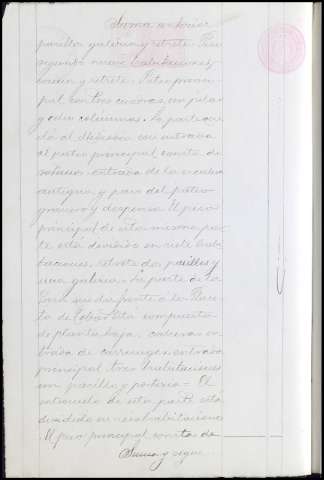 Suma anterior
pasillos galeria y retrete. Piso
segundo nueve habitaciones,
cocina y retrete. Patio princi-
pal con tres cuadras, un pilar
y ocho columnas. La parte que
dá al con entrada
al patio principal, consta de
entrada de la escalera
antigua y paso del patio
y despensa. El piso
principal de esta misma par-
te está dividido en siete habi-
taciones, retrete dos pasillos y
una galeria. La parte de la
casa que dá frente a la Place-
ta de compuesta
de planta baja, cochera en-
trada de carruages, entrada
principal tres habitaciones
un pasillo y porteria = El
entresuelo de esta parte está
dividido en seis habitaciones
. El piso principal consta de
Suma y sigue